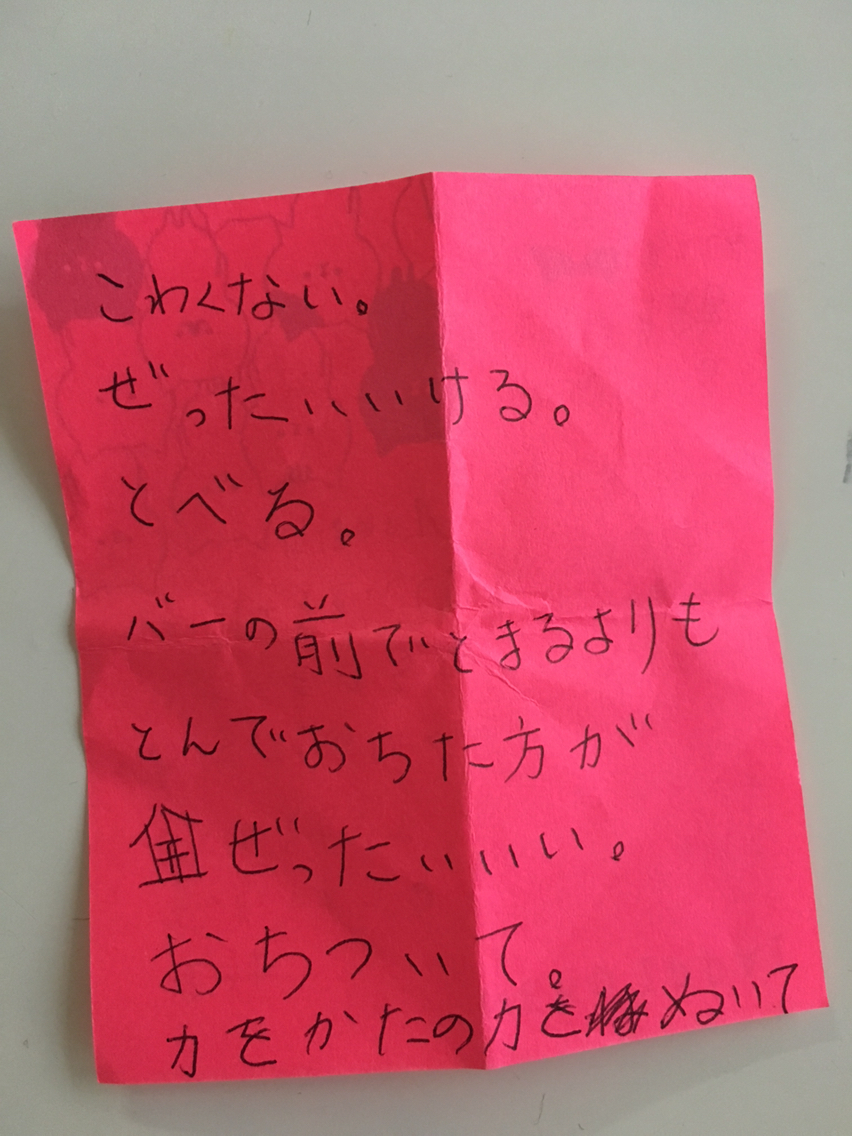 こわくない。
ぜったいいける。
とべる。
バーの前でとまるよりも
とんでおちた方が
ぜったいいい。
おちついて。
力をかたの力をぬいて